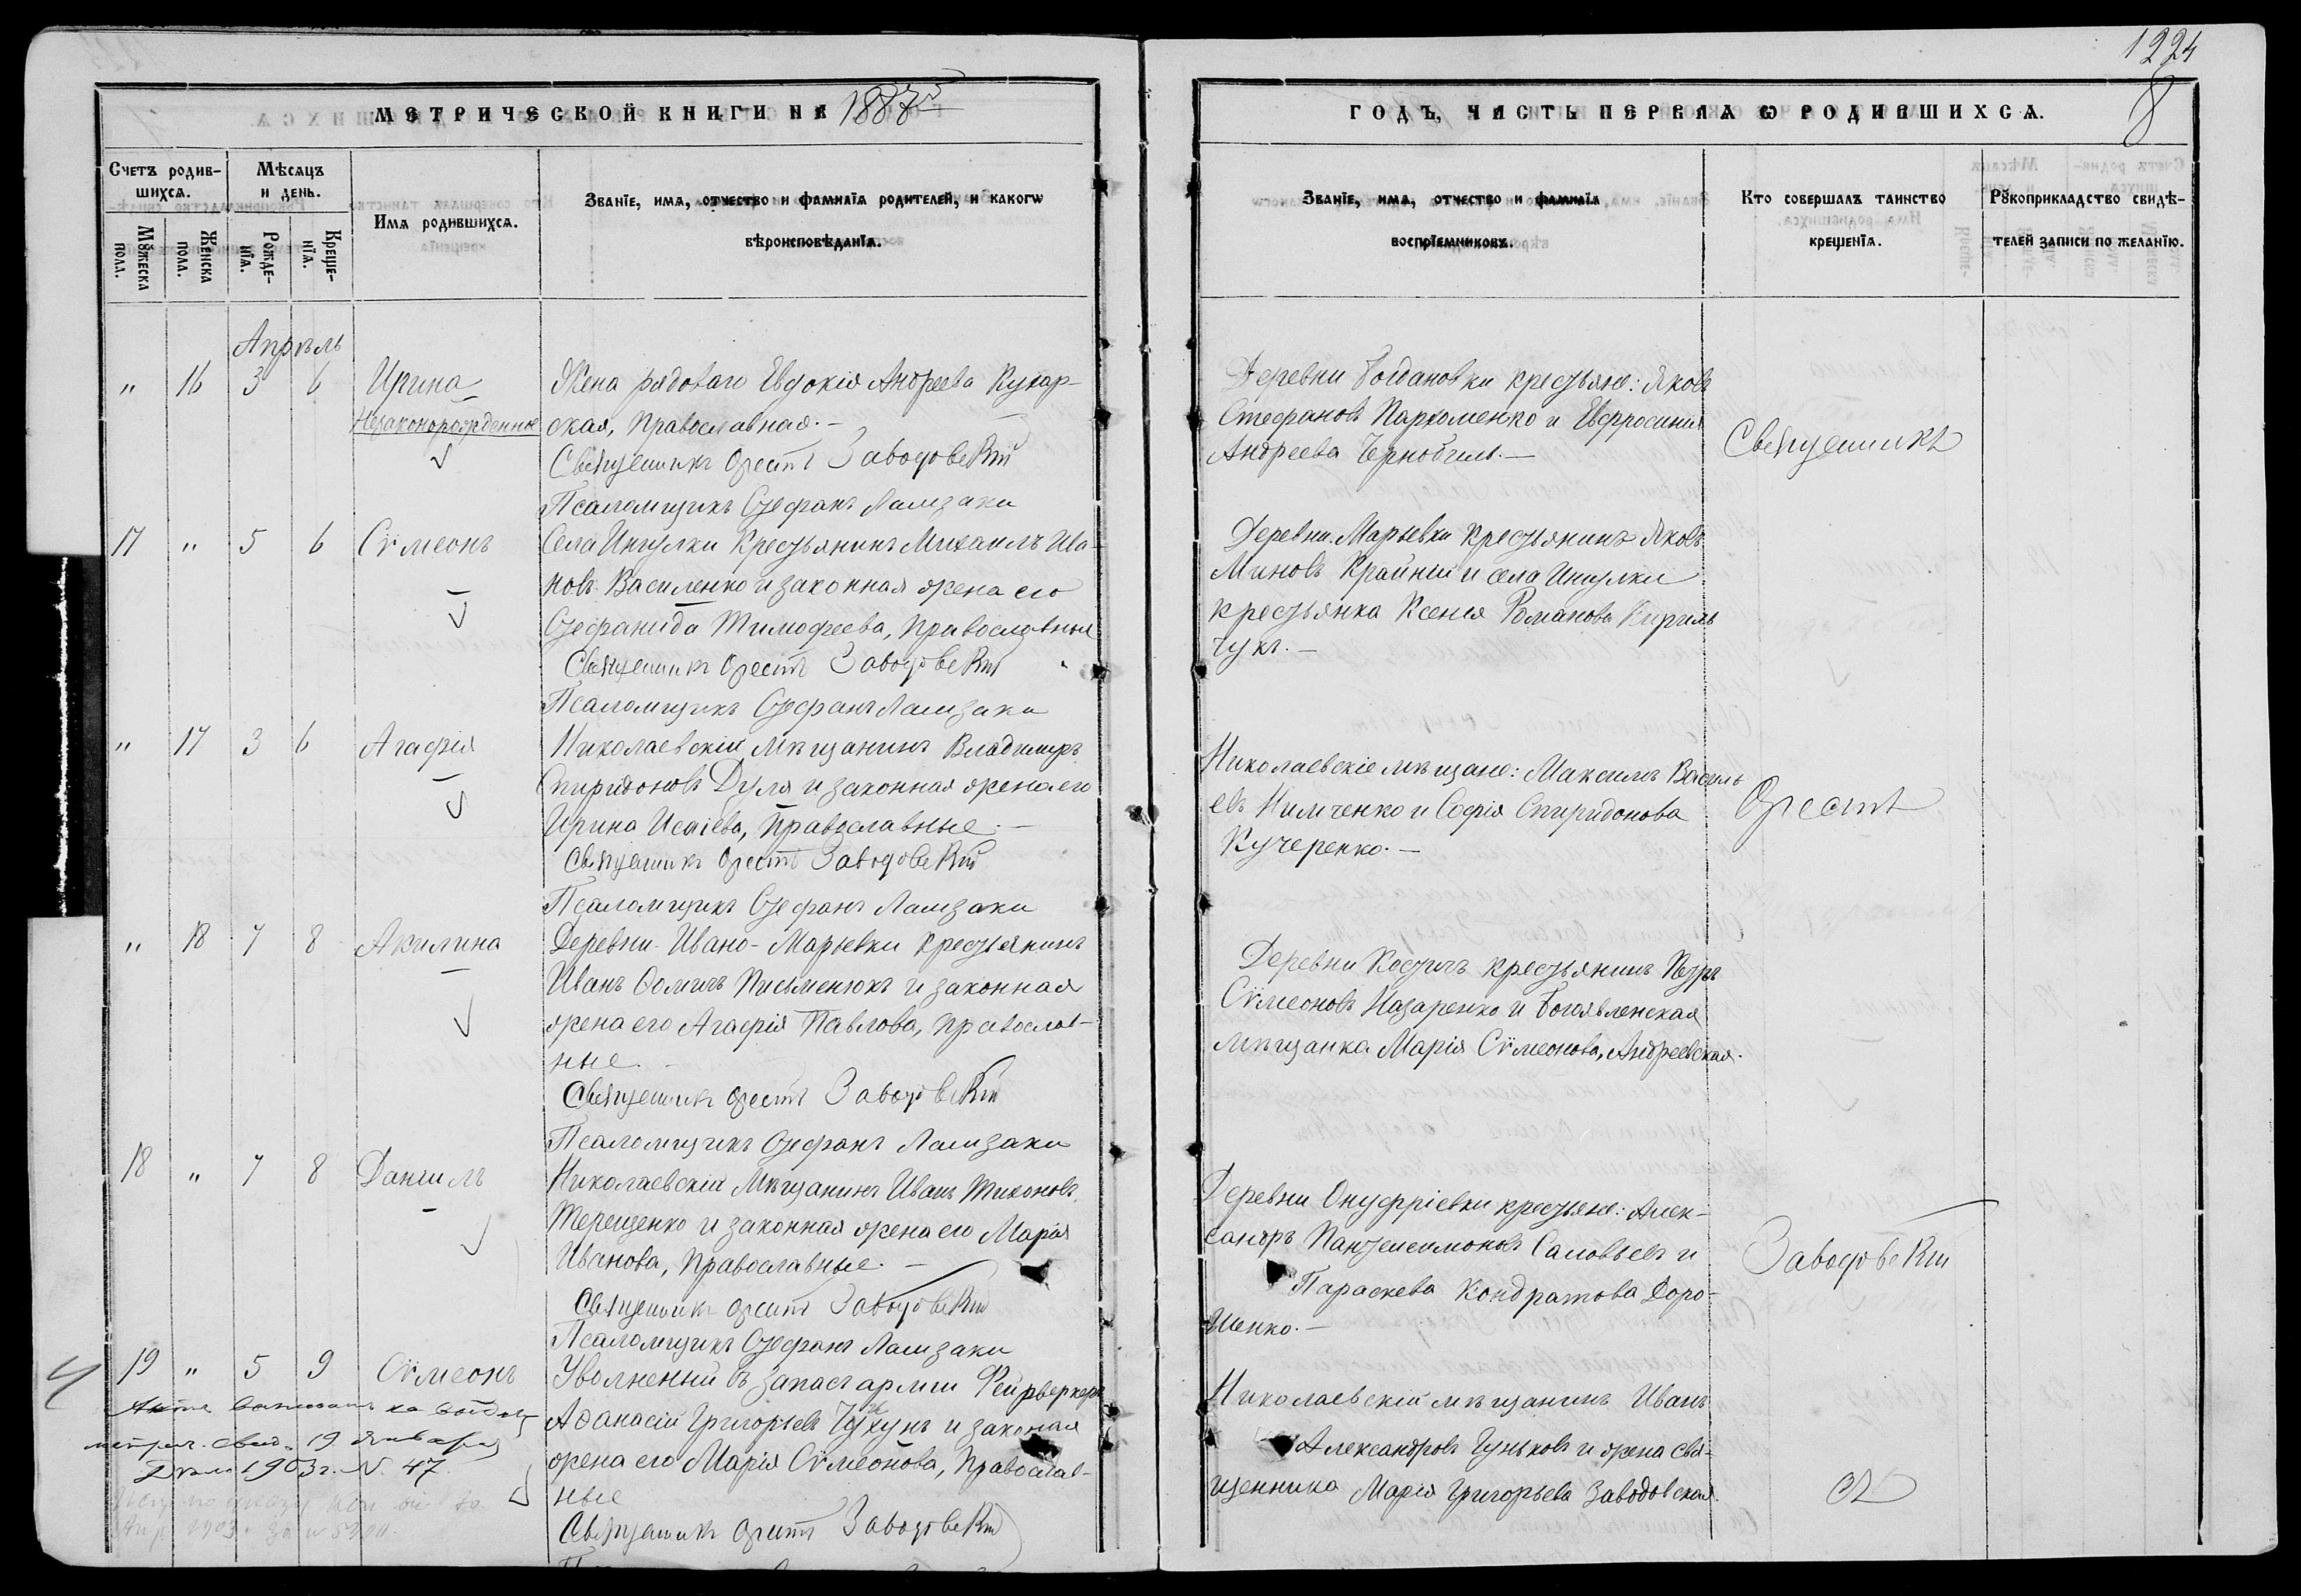 1224
8
МЕТРИЧЕСКОЙ КНИГИ НА 1887й
ГОДЪ, ЧАСТЬ ПЕРВАЯ Ѡ РОДИВШИХСѦ.
Счетъ родив-
шихсѧ.
Мѣсяцъ
и день.
Мꙋжеска
пола.
Женска
пола.
Рожде-
нїѧ.
Креще-
нїѧ.
Имѧ родившихсѧ.
Званїе, имѧ, отчество и фамилїѧ родителей, и какогѡ
вѣроисповѣданїѧ.
Званїе, имѧ, отчество и фамилїѧ
воспрїемниковъ.
Кто совершалъ таинство
крещенїѧ.
Рꙋкоприкладство свидѣ-
телей записи по желанїю.
Апрѣль
" 16 3 6 Ирина
Незаконорожденное
Жена рядоваго Евдокія Андреева Кухар-
ская, Православная.-
Священникъ Орестъ Заводовскій
Псаломщикъ Стефанъ Ламзаки
Деревни Богдановки крестьяне: Яковъ
Стефановъ Пархоменко и Евфросинія
Андреева Чернобиль.-
Священникъ
17 " 5 6 Сѵмеонъ
Села Ингулки Крестьянинъ Михаилъ Ива-
новъ Василенко и законная жена его
Стефанида Тимофеева, Православныя
Священникъ Орестъ Заводовскій
Псаломщикъ Стефанъ Ламзаки
Деревни Марьевки крестьянинъ Яковъ
Миновъ Крайній и села Ингулки
крестьянка Ксенія Романова Кириль
чукъ.-
" 17 3 6 Агафія
Николаевскій мѣщанинъ Владимиръ
Спиридоновъ Дуля и законная жена его
Ирина Исаіева, Православные.-
Священникъ Орестъ Заводовскій
Псаломщикъ Стефанъ Ламзаки
Николаевскіе мѣщане: Максимъ Василь
евъ Нимченко и Софія Спиридонова
Кучеренко.-
Орестъ
" 18 7 8 Акилина
Деревни Ивано-Марьевки Крестьянинъ
Иванъ Ѳоминъ Письменюкъ и законная
жена его Агафія Павлова, православ-
ные.
Священникъ Орестъ Заводовскій
Псаломщикъ Стефанъ Ламзаки
Деревни Костичъ крестьянинъ Петръ
Сѵмеоновъ Назаренко и Богоявленская
мѣщанка Марія Сѵмеонова, Андреевская.
18 " 7 8 Даніилъ
Николаевскій Мѣщанинъ Иванъ Тихоновъ
Терещенко и законная жена его Марія
Иванова, Православные.-
Священникъ Орестъ Заводовскій
Псаломщикъ Стефанъ Ламзаки
Деревни Онуфріевки крестьяне: Алек-
сандръ Пантелеимоновъ Саловьевъ и
Параскева Кондратова Доро-
шенко.-
Заводовскій
19 " 5 9 Сѵмеонъ
Уволненный въ запасъ арміи Фейрверкеръ
Аѳанасій Григорьевъ Чухунъ и законая
жена его Марія Сѵмеонова, Православ-
ные
Священникъ Орестъ Заводовскій
Николаевскій мѣщанинъ Иванъ
Александровъ Гуньковъ и жена свя-
щенника Марія Григорьева Заводовская.
метрич. свид. 19 Января
1903 г. N. 47